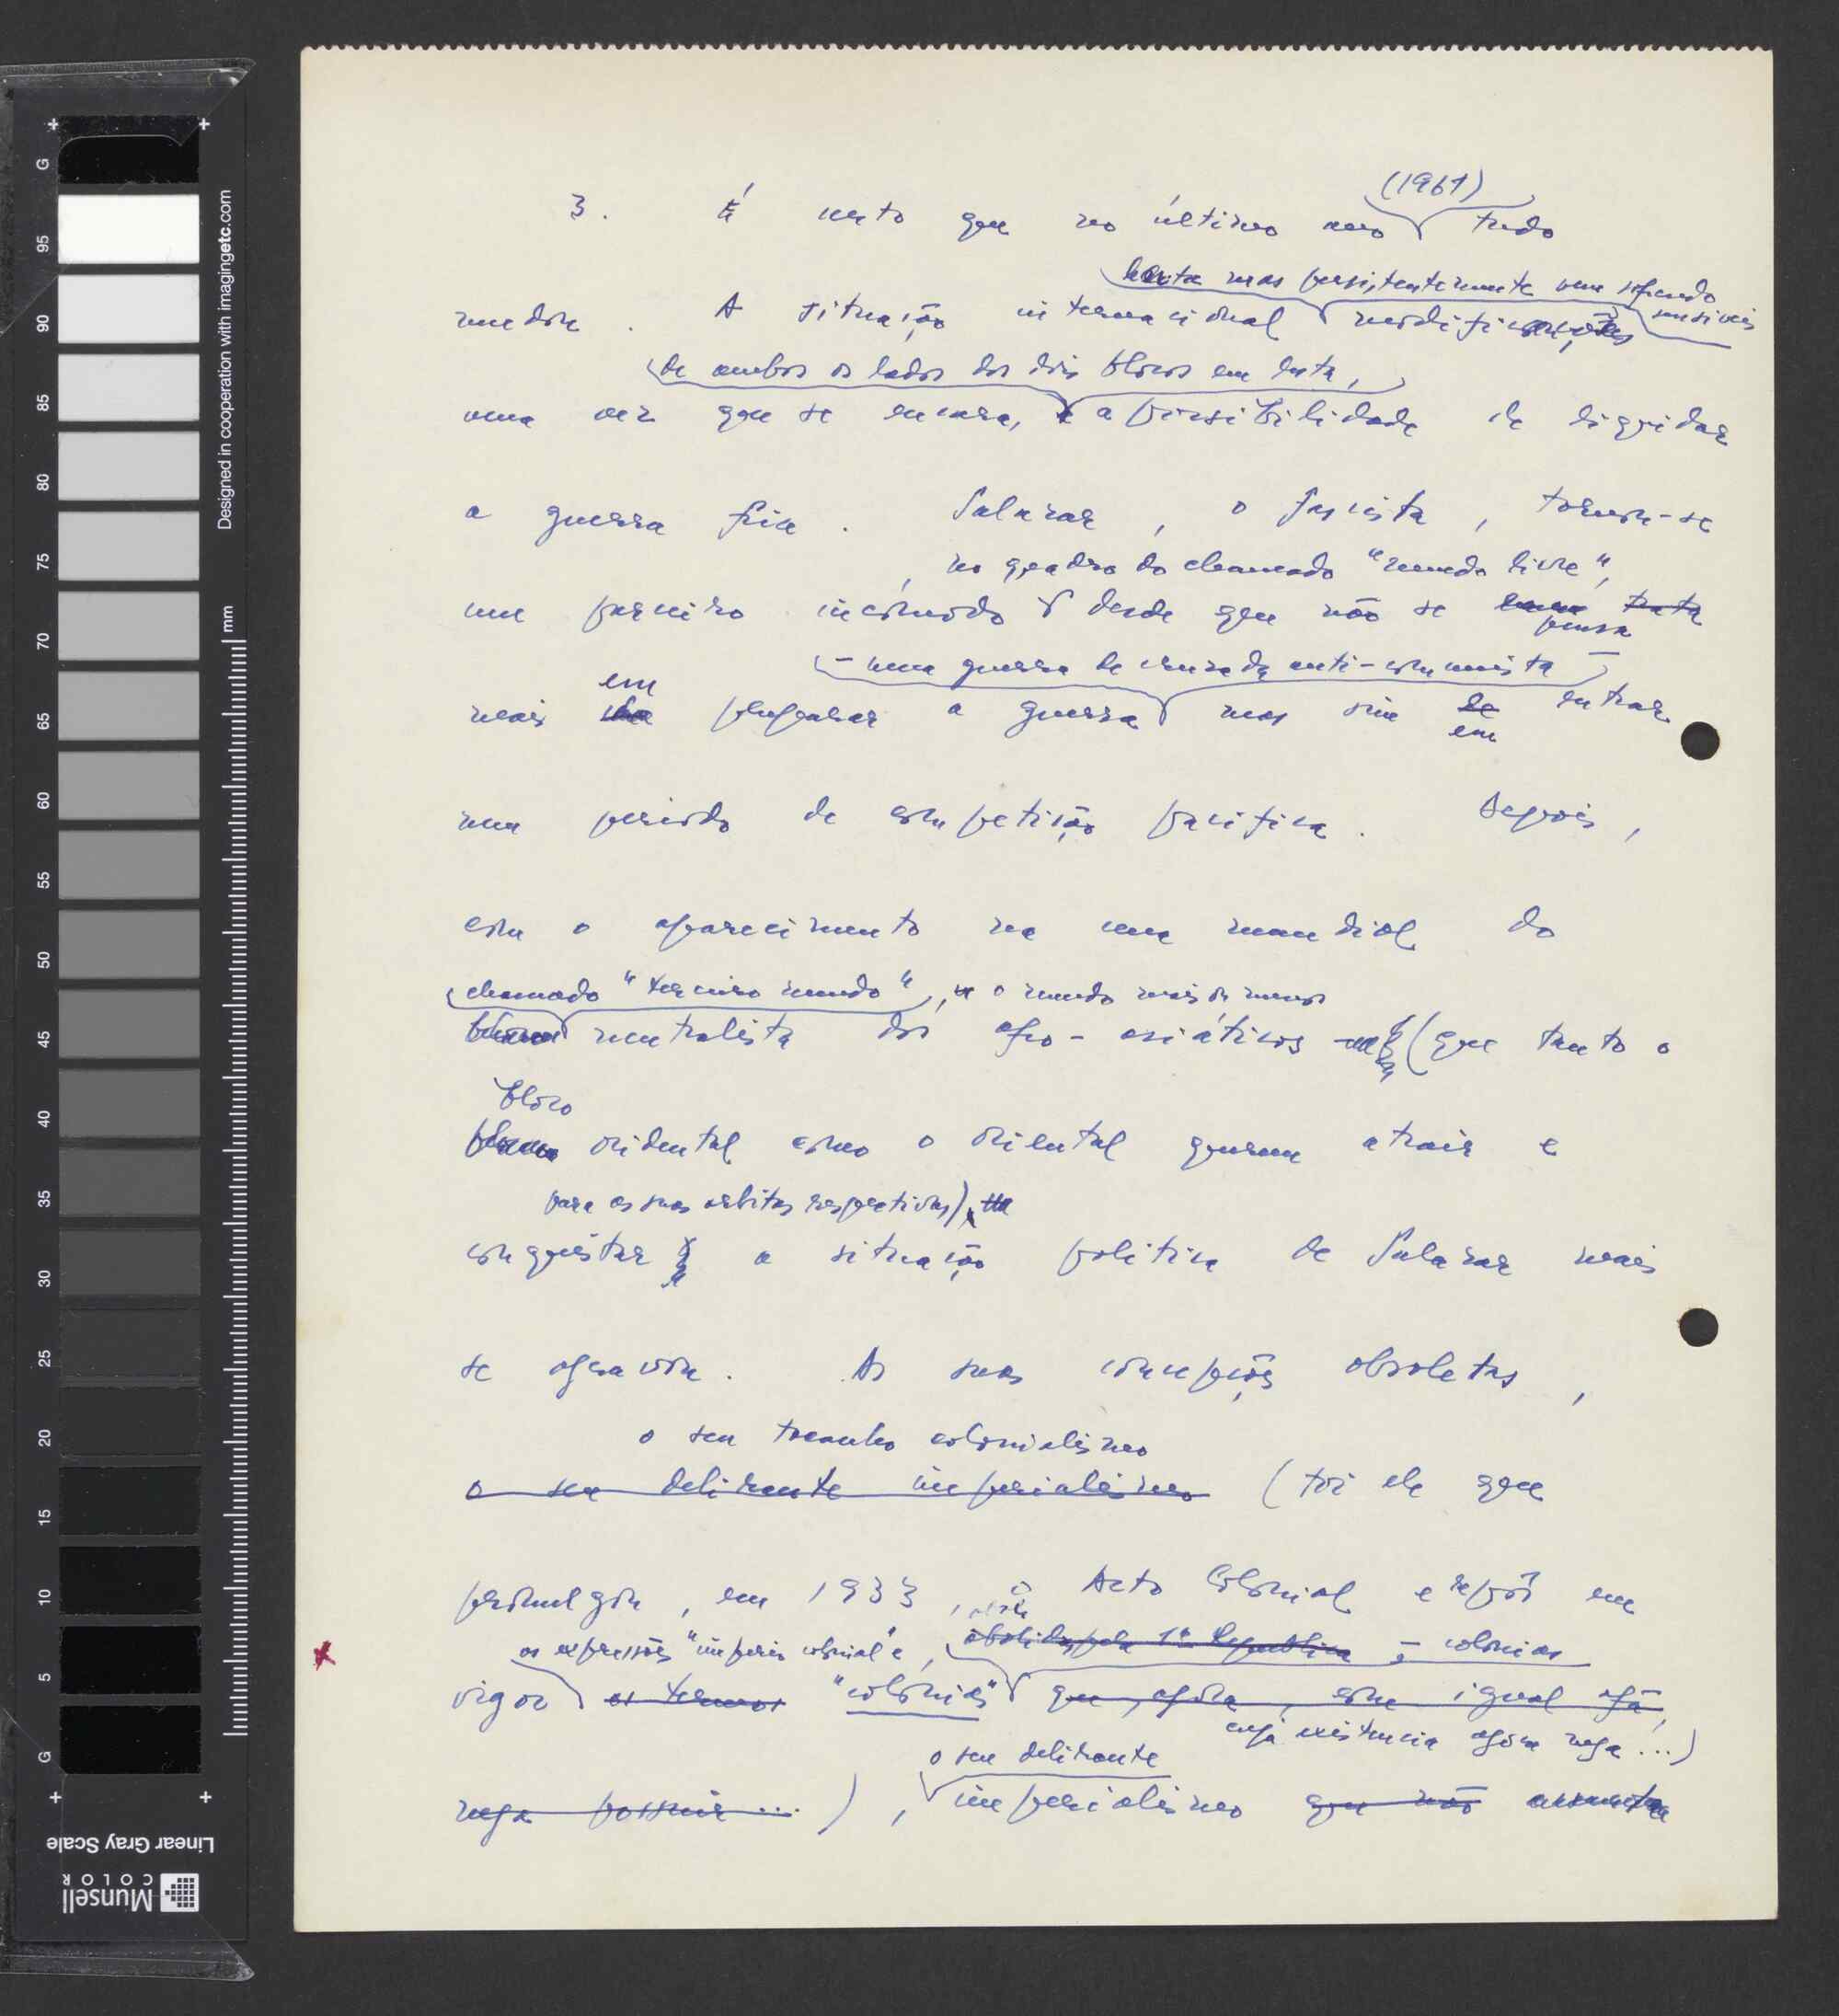 (1961)
3. É certo que no último ano tudo
lenta mas persistentemente vem sofrendo
mudou. A situação internacional modificações sensíveis
de ambos os lados dos dois blocos em luta,
uma vez que se encara, a possibilidade de liquidar
a guerra fria. Salazar, o fascista, tornou-se
, no quadro do chamado "mundo livre",
um parceiro incómodo desde que não se trata
pensa
- uma guerra de cruzada anti-comunista -
em
mais preparar a guerra mas sim de entrar
em
num período de competição pacífica. Depois,
com o aparecimento na cena mundial do
chamado "terceiro mundo", o mundo mais ou menos
neutralista dos afro-asiáticos (que tanto o
bloco
ocidental como o oriental querem atrair e
para as suas orbitas respectivas),
conquistar a situação politica de Salazar mais
se agravou. As suas concepções obsoletas,
o seu tacanho colonialismo
o seu delirante imperialismo (foi ele que
promulgou, em 1933, o Acto Colonial e repôs em
as expressões "império colonial" e, abolidas pela 1ª Republica - colonias
vigor os termos "colónias" que, agora, com igual afã,
cuja existencia agora nega ...)
o seu delirante
nega possuir ... ), imperialismo que não